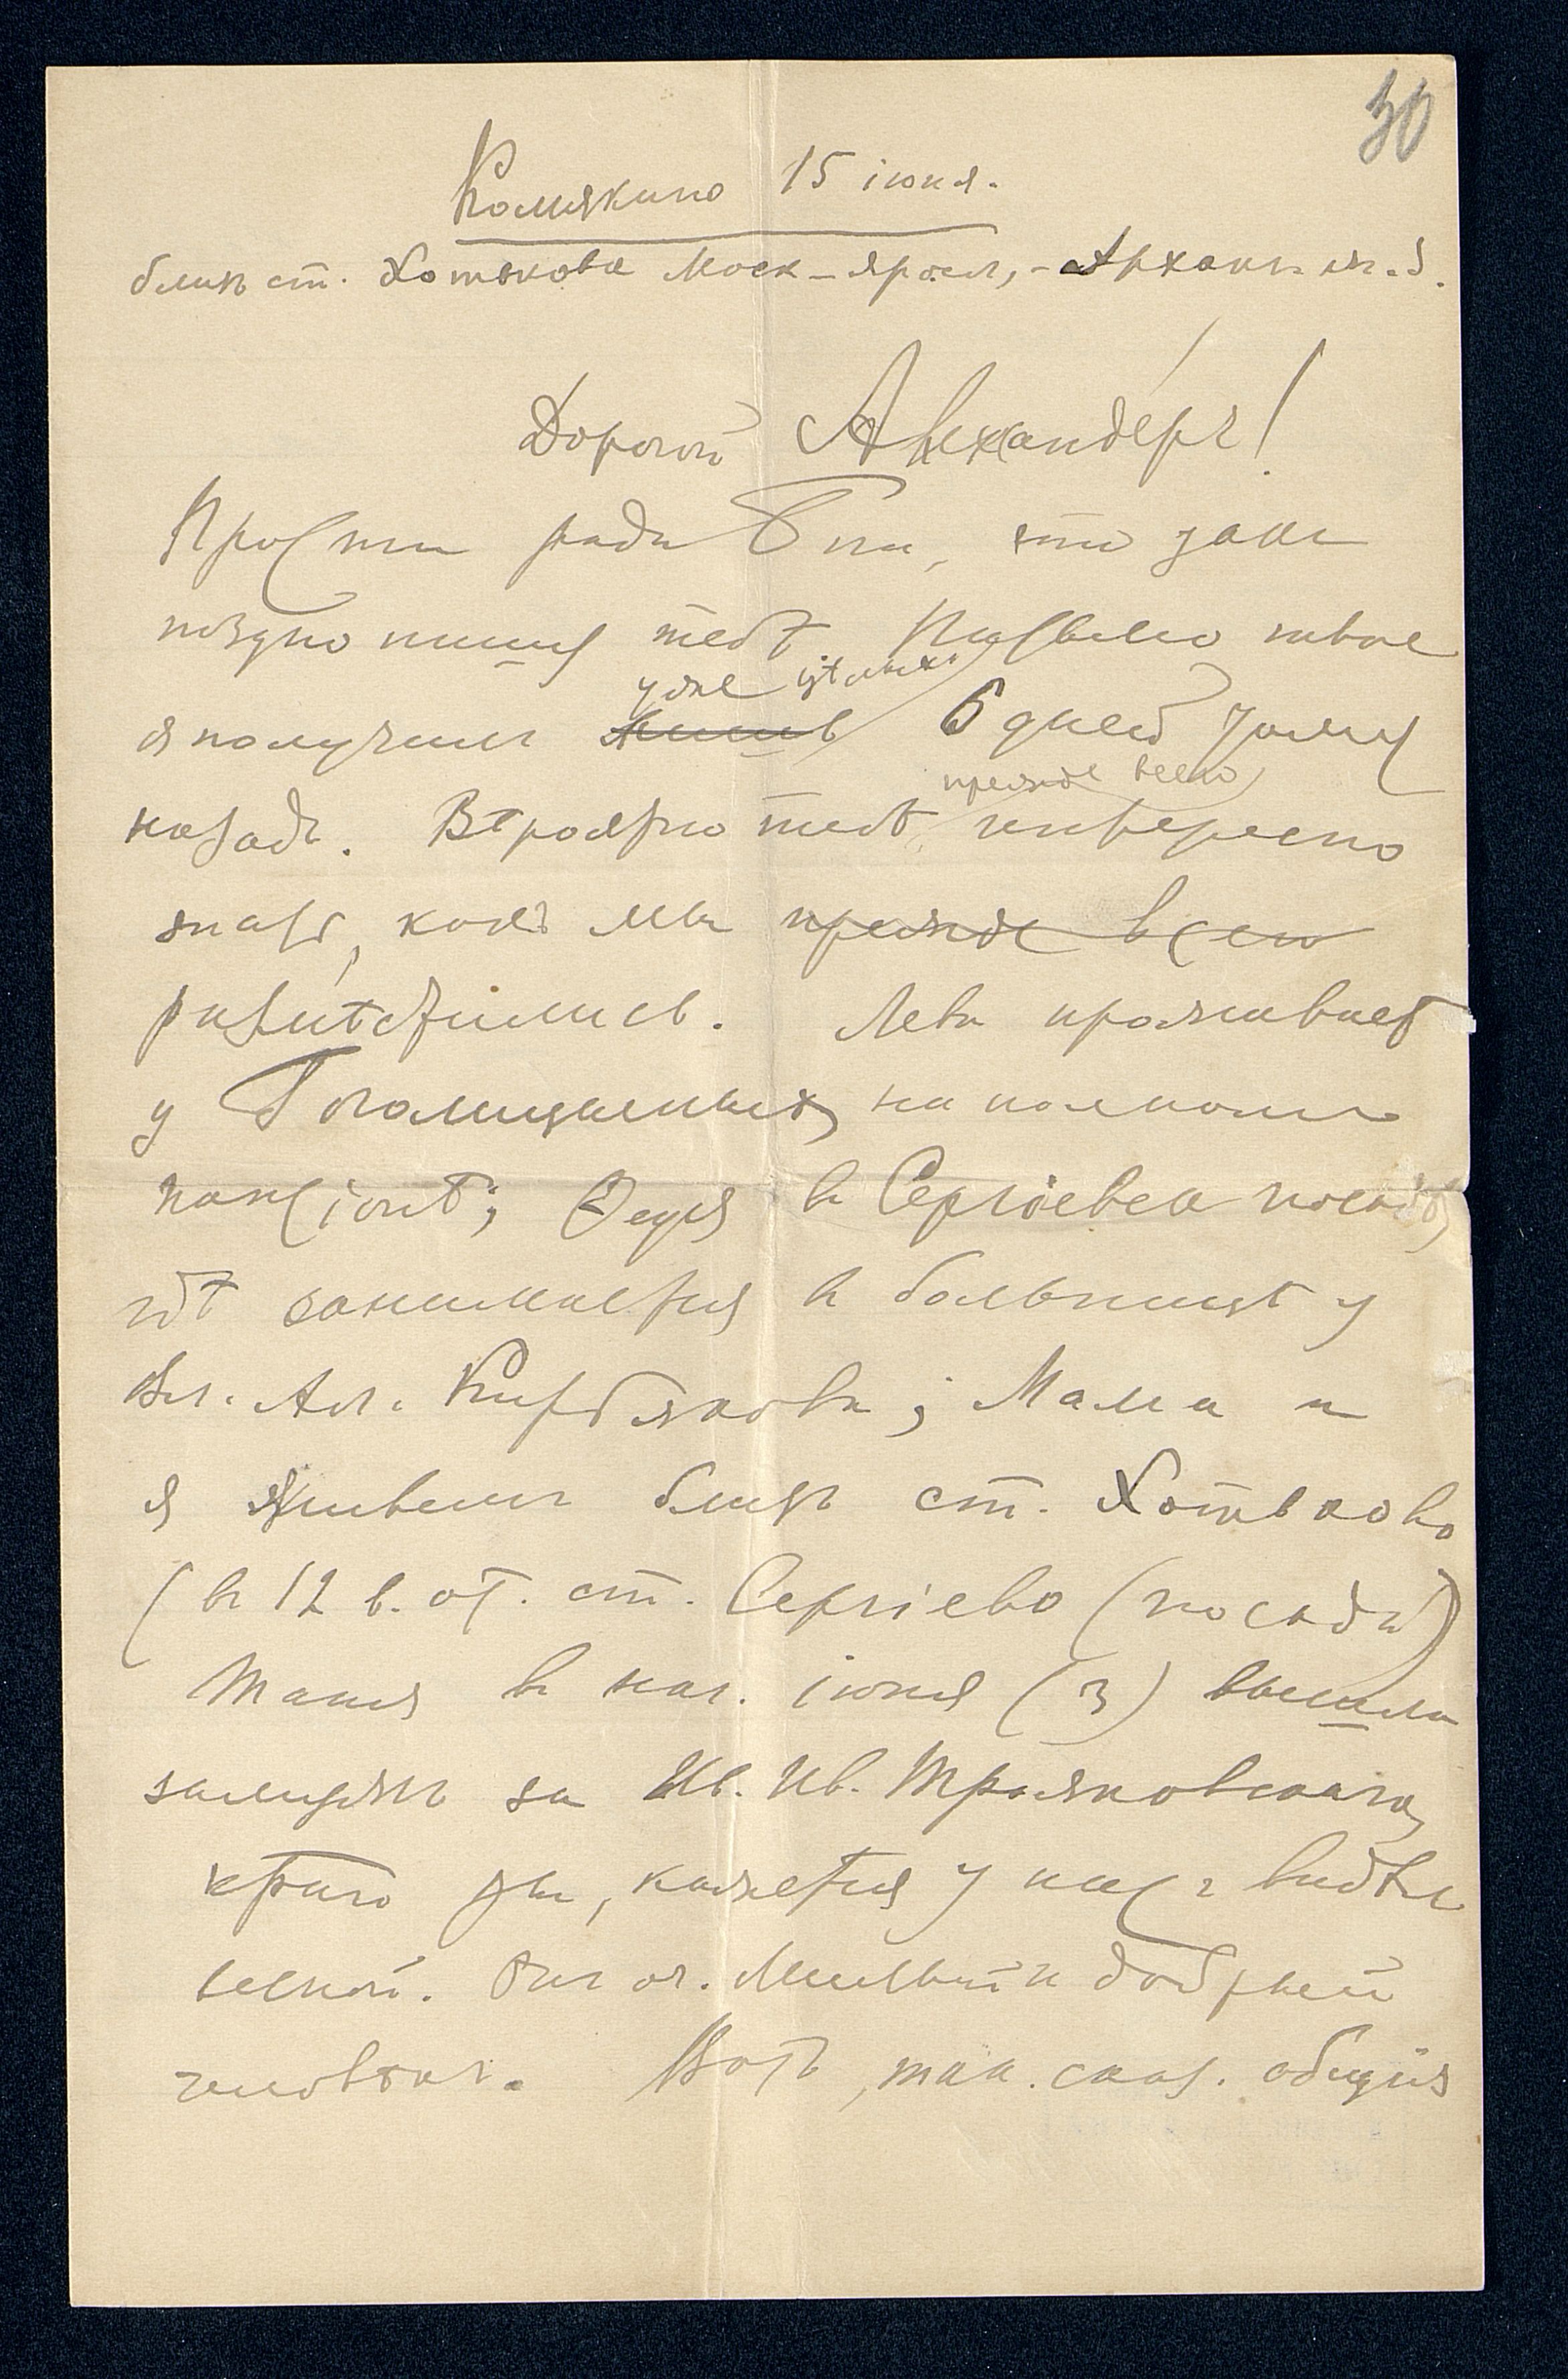 30
Комякино 15 іюня.
близъ ст. Хотьково Моск-Яросл,-Арханг. ж.д.
Дорогой Александеръ!
Прости ради Бга, что такъ
поздно пишу тебѣ. Письмо твое
уже цѣлыхъ
я получилъ лишь 6 дней тому
прежде всего
назадъ. Вѣроятно тебѣ интересно
знать, какъ мы прежде всего
размѣстились. Лева проживаетъ
у на полномъ
пансіонѣ; Федя въ Сергіевск посадѣ,
гдѣ занимается въ больницѣ у
Вл. Ал. ; Мама и
я живемъ близъ ст. Хотьково
(въ 12 в. от. ст. Сергіево (посадъ)
Таня въ нач. іюня (3) вышла
замужъ за Ив. Ив. Трояновскаго,
котраго ты, кажется у насъ видѣлъ
весной. Онъ оч. милый и добрый
человѣкъ. Вотъ, так. сказ. общія